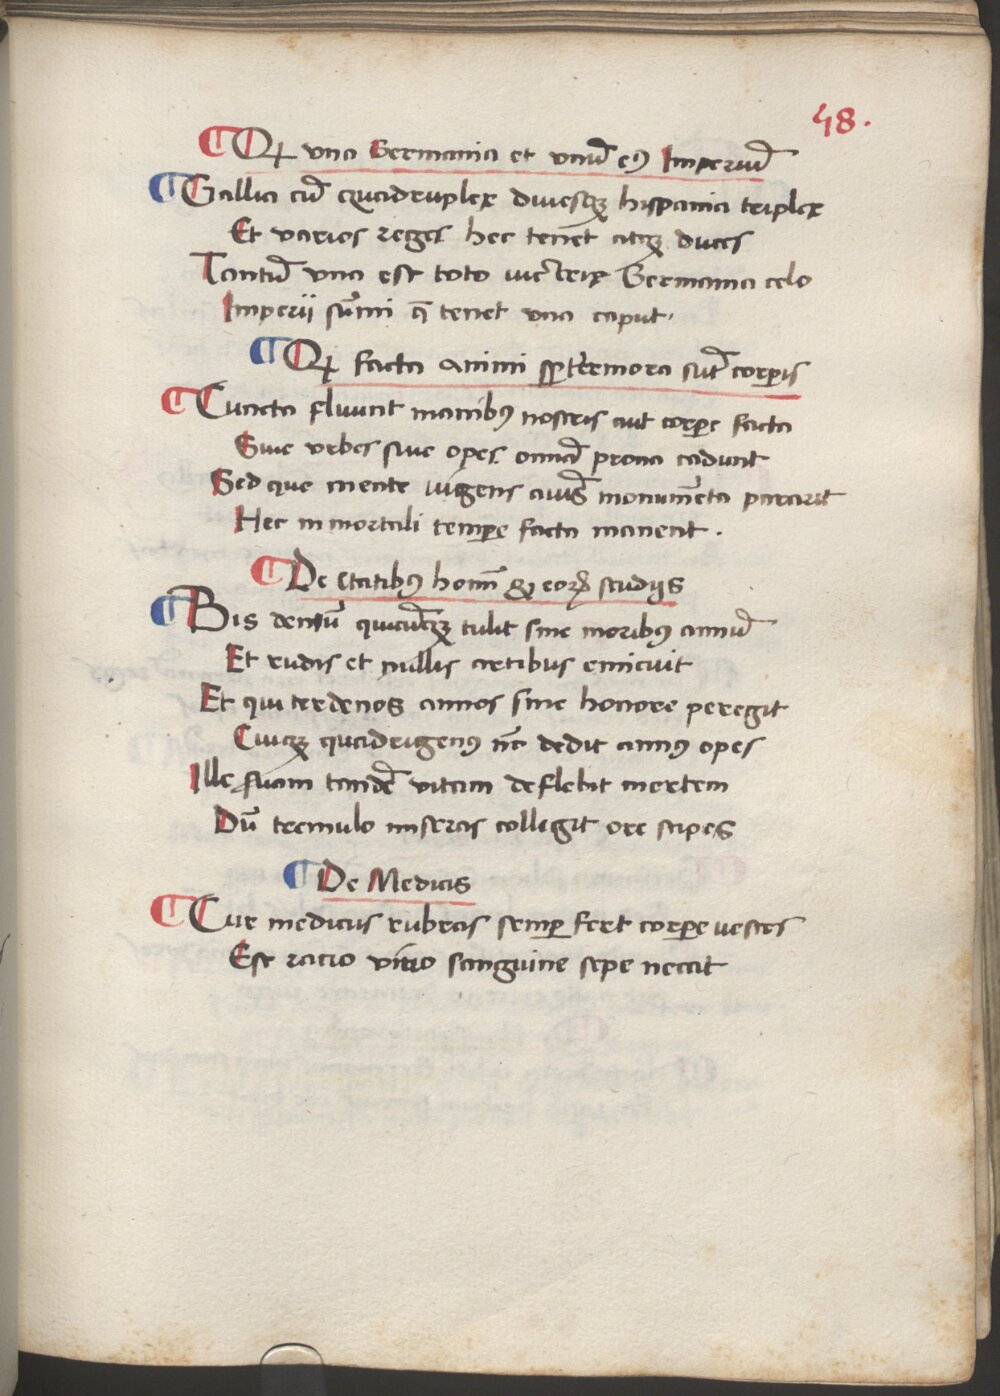 48.
¶ Qꝛ vna Germania et vnū eꝰ Imperiū
¶ Gallia cū quadruplex diuesqꝫ hispania triplex
Et varios reges hec tenēt atqꝫ duces
Tantū vna est toto Germania celo
Imperii sūmi q̄ tenet vna caput.
¶ Qꝛ facta animi sūt corꝑis
¶ Cuncta fluunt manibꝰ nostris aut corꝑe facta
Siue vrbes siue opes omīa prona cadunt
Sed que mente vigens monumēta pararit
Hec inmortali temꝑe facta manent.
¶ De Etatibꝰ homī & eoꝝ studijs
¶ Bis denū quicūqꝫ tulit sine moribꝰ annū
Et rudis et nullis artibus emicuit
Et qui ter denos annos sine honore peregit
Cuiqꝫ quadrigenꝰ nō dedit annꝰ opes
Ille suam tandē vitam deflebit inertem
Dū tremulo miseras colligit ore stipes
¶ De Medicis
¶ Cur medicus rubras semꝑ fert corꝑe uestes
Est racio vitro sanguine sepe necat